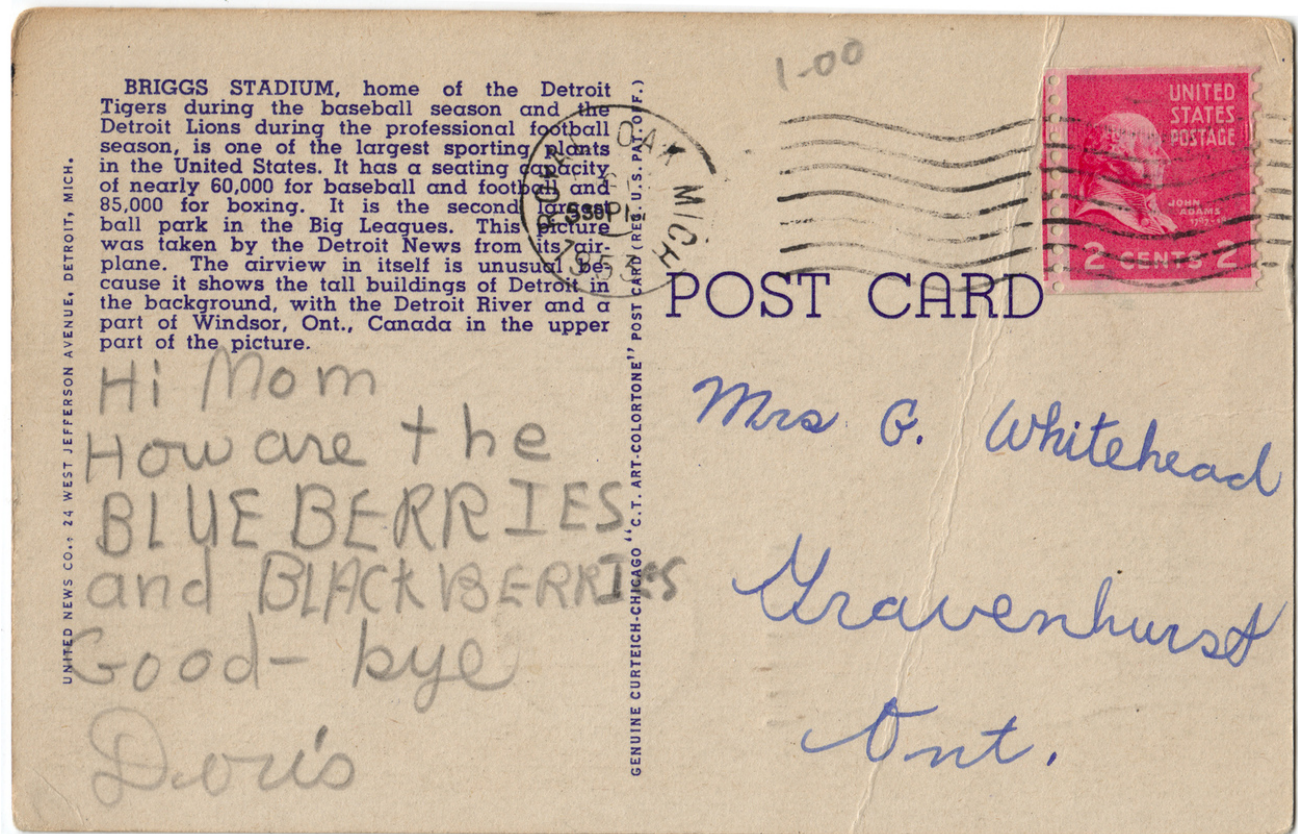 1-00
BRIGGS STADIUM, home of the Detroit
Tigers during the baseball season and the
Detroit Lions during the professional football
season, is one of the largest sporting plants
in the United States. It has a seating capacity
of nearly 60,000 for baseball and football and
85,000 for boxing. It is the second largest
ball park in the Big Leagues. This picture
was taken by the Detroit News from its air-
plane. The airview in itself is unusual be-
cause it shows the tall buildings of Detroit in
the background, with the Detroit River and a
part of Windsor, Ont., Canada in the upper
part of the picture.
Hi Mom
How are the
BLUEBERRIES
and BLACKBERRIES
Good-bye
Doris
UNITED NEWS CO., 24 WEST JEFFERSON AVENUE, DETROIT, MICH.
GENUINE CURTEICH-CHICAGO "C.T. ART-COLORTONE" POST CARD (REG. U.S. PAT. OFF.)
OAK MICH
1953
UNITED
STATES
POSTAGE
JOHN
ADAMS
2 CENTS 2
POST CARD
Mrs G. Whitehead
Gravenhurst
Ont.